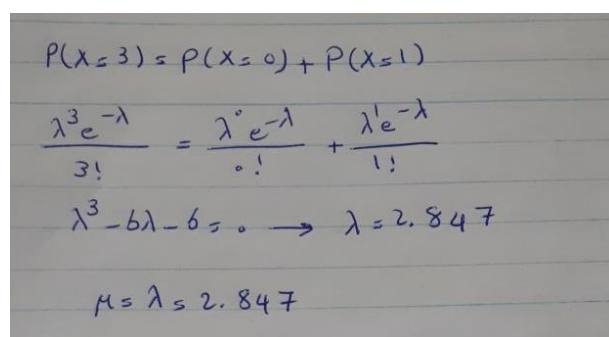 P(X=3) = P(X=0) + P(X=1)
λ³e^-λ / 3! = λ⁰e^-λ / 0! + λ¹e^-λ / 1!
λ³ - 6λ - 6 = 0 → λ = 2.847
μ = λ = 2.847